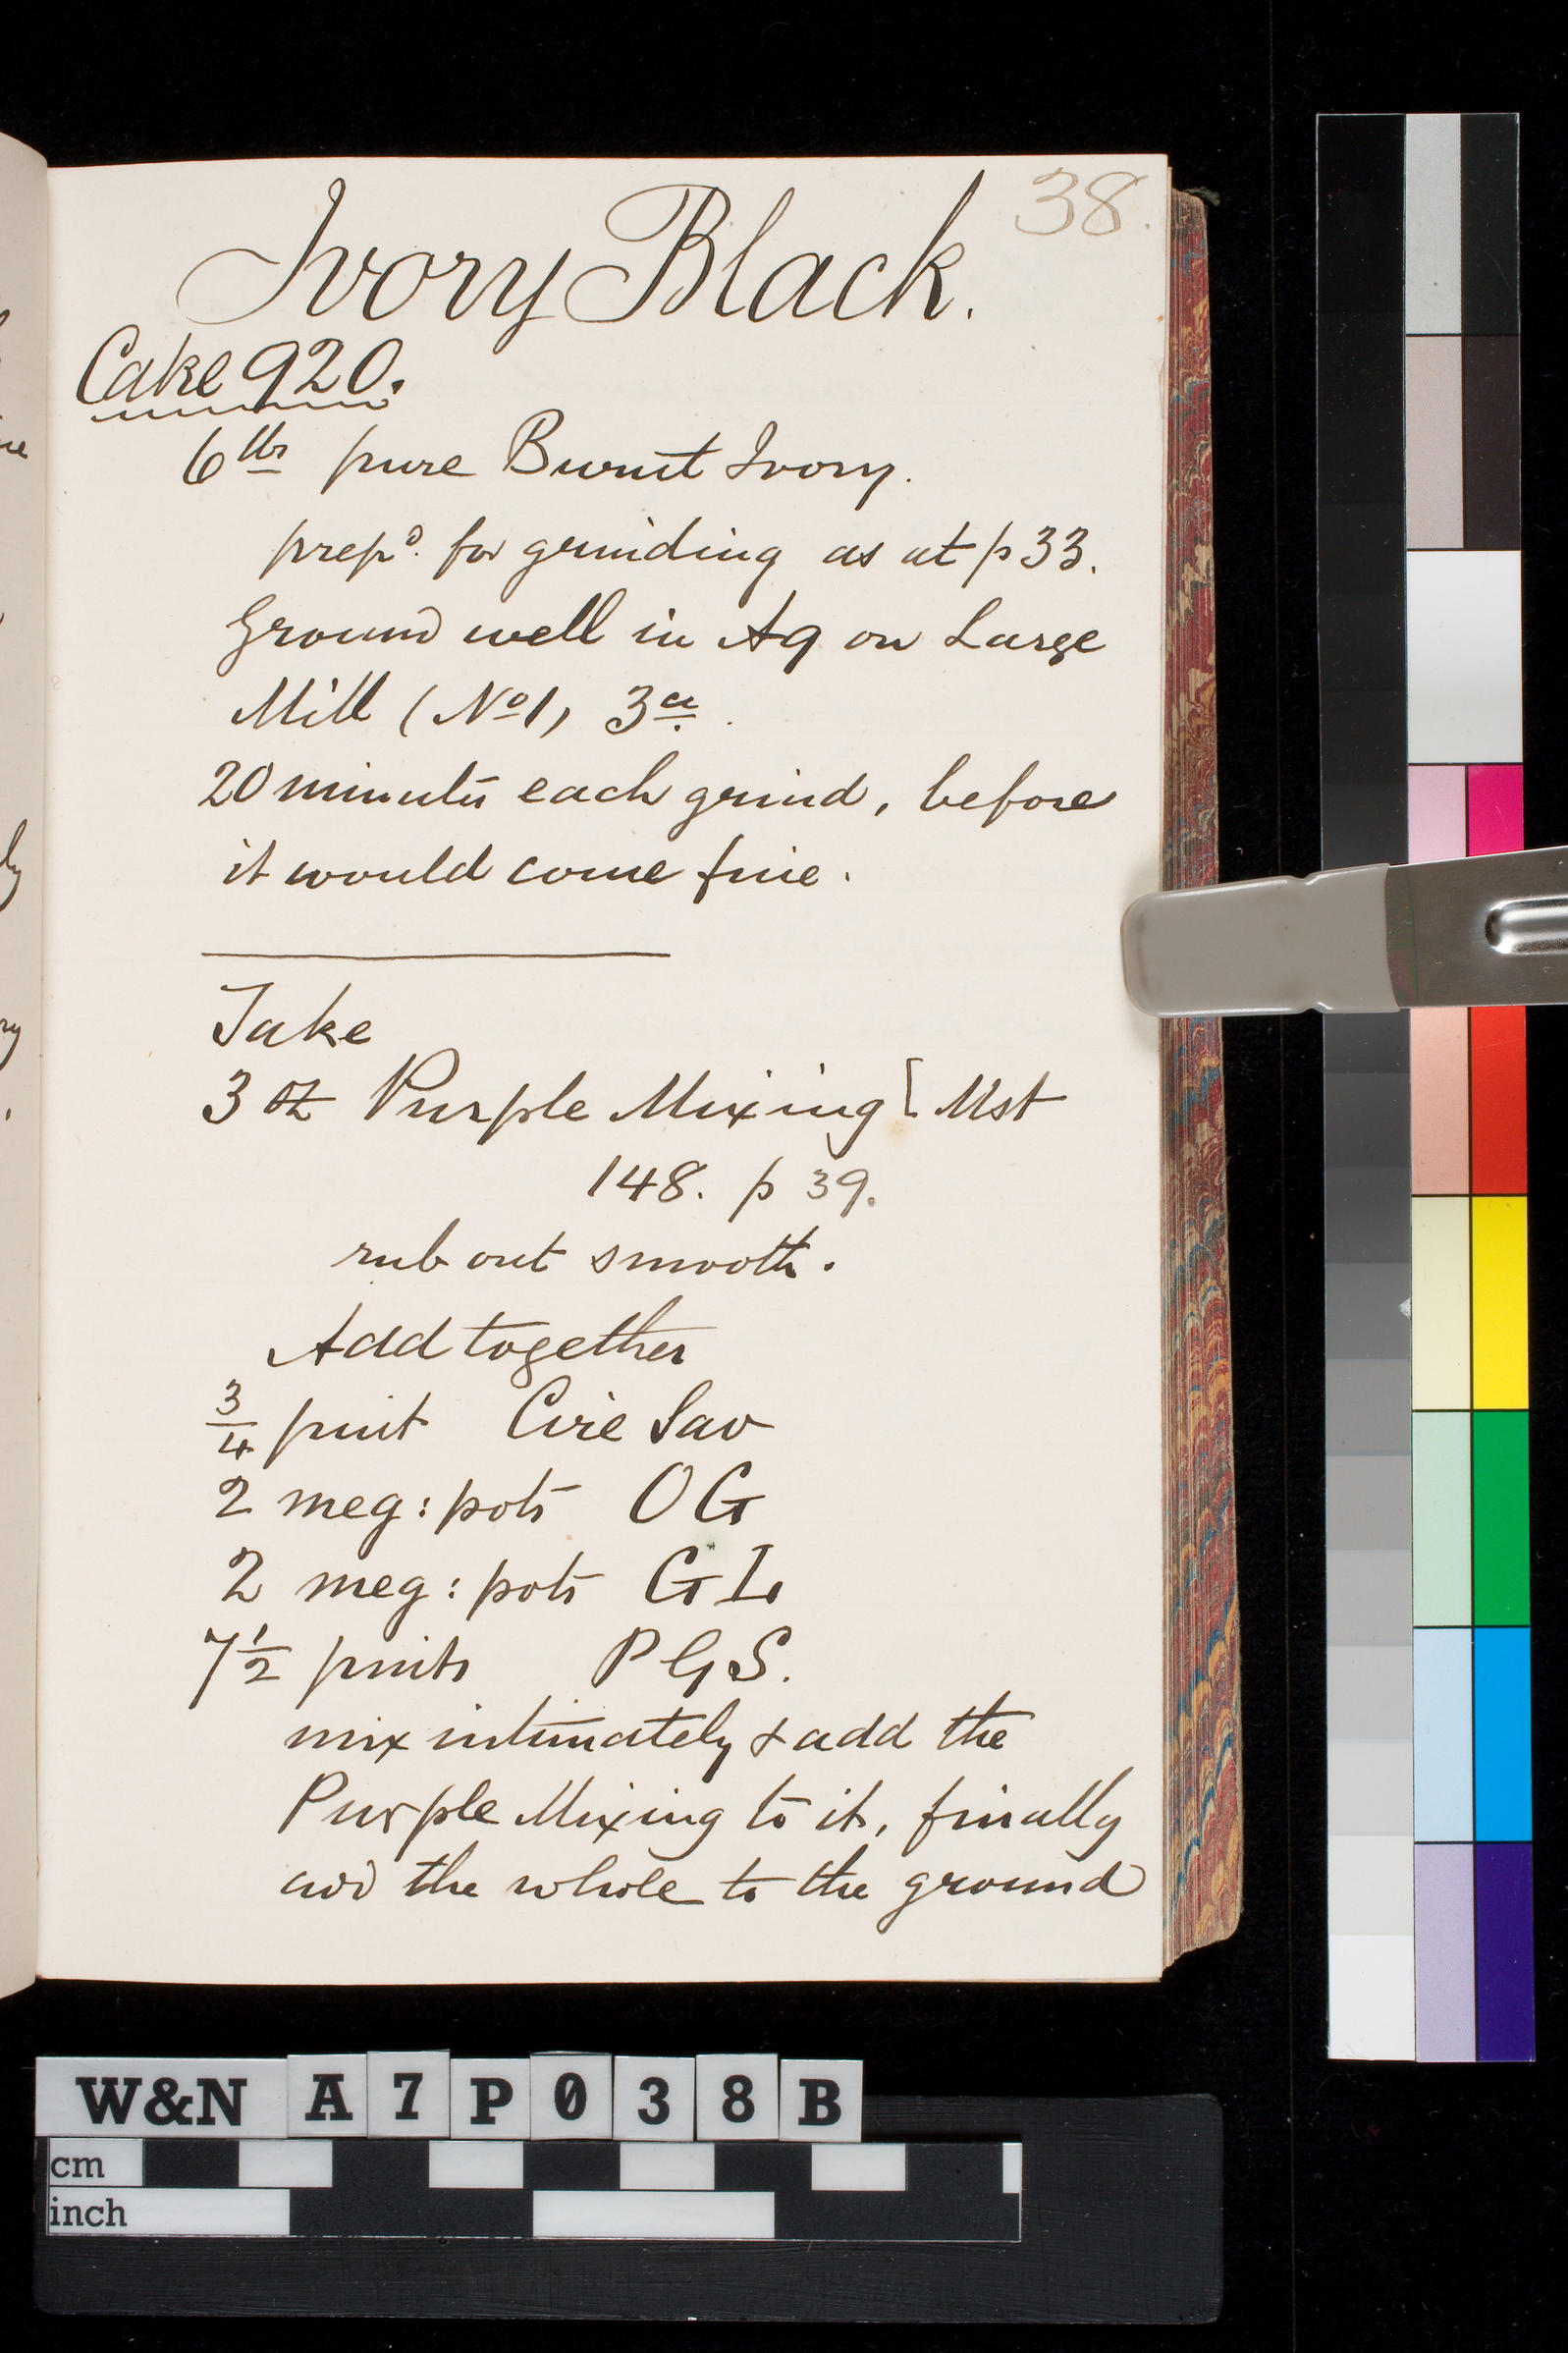 38.
Ivory Black.
Cake 920.
6 lbs pure Burnt Ivory.
prepd. for grinding as at p 33.
Ground well in Aq on Large
Mill (No 1) 3ce.
20 minutes each grind, before
it would come fine.
Take
3 oz Purple Mixing [ Mst
148. p 39.
rub out smooth.
Add together
3/4 pint Cire Sav
2 meg: pots O G
2 meg: pots G L
7 1/2 pints P G S.
mix intimately & add the
Purple Mixing to it, finally
add the whole to the ground
W&N A7P038B
cm
inch